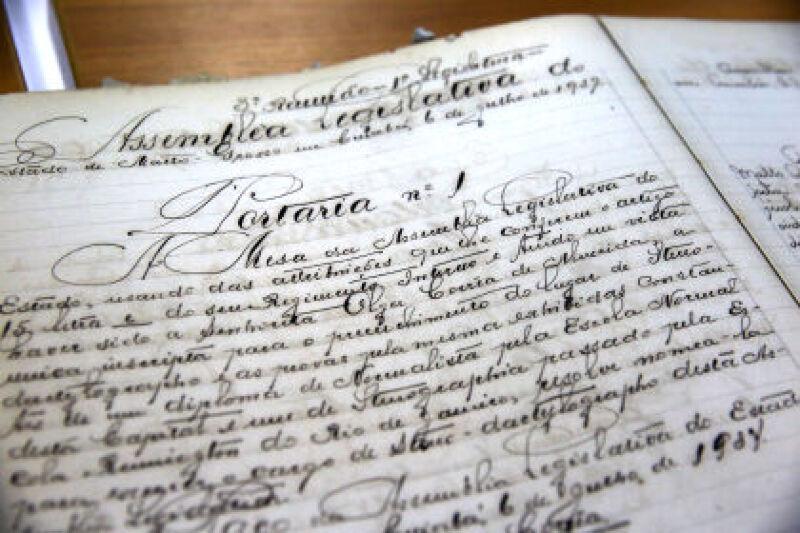 3ª Reunião - 1ª Legislatura
Assembléa Legislativa do
Estado de Matto-Grosso em Cuiabá, 6 de Julho de 1937.
Portaria nº 1
A Mesa da Assembléa Legislativa do
Estado, usando das attribuições que lhe confere o artigo
15 letra e do seu Regimento Interno e tendo em vista
haver sido a Senhorita Corrêa de Almeida a
unica inscripta para o preenchimento do lugar de Steno-
dactylographo e as provas pela mesma exhibidas constan-
tes de um diploma de Normalista pela Escola Normal
desta Capital e um de Stenographia passado pela Es-
cola Remington do Rio de Janeiro, resolve nomea-la
para exercer o cargo de Steno-dactylographo desta As-
sembléa Legislativa.
Paço da Assembléa Legislativa do Estado
Cuiabá, 6 de Julho de 1937
Matto